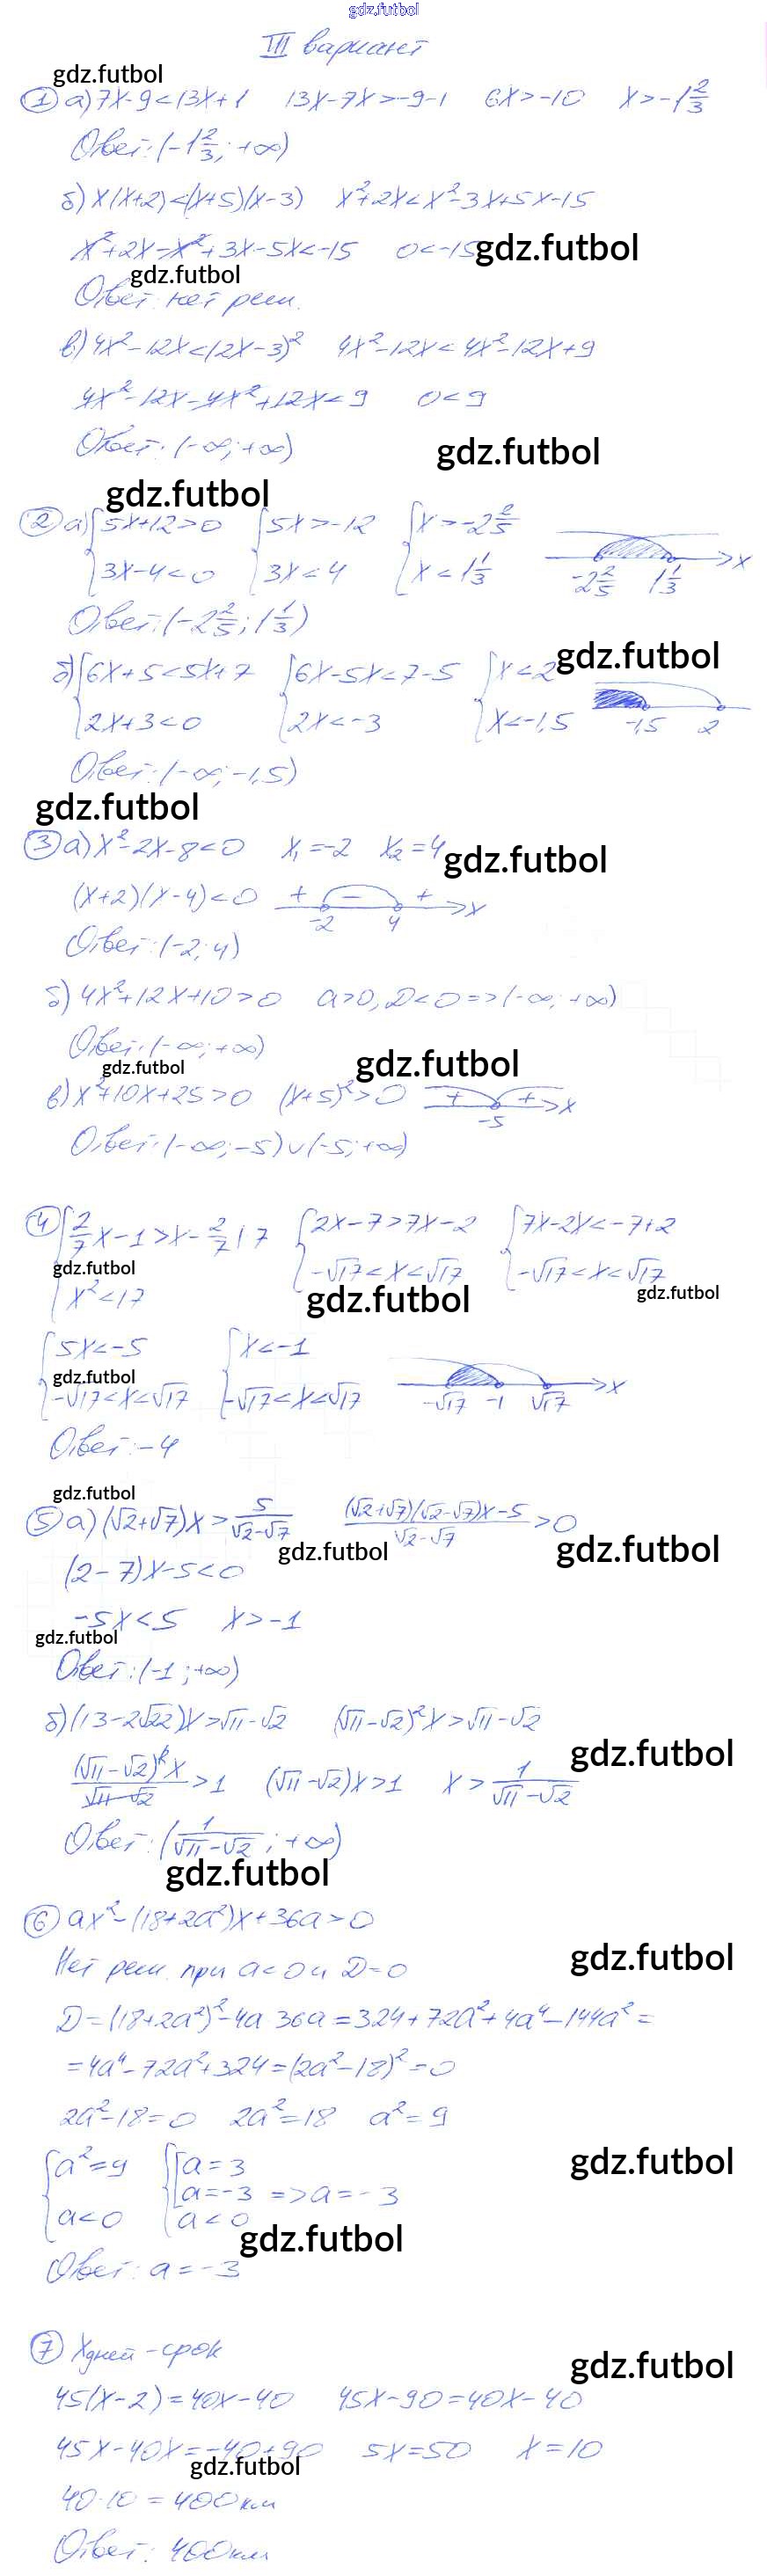 gdz.futbol
III вариант
gdz.futbol
① а) 7x-9<13x+1 13x-7x>-9-1 6x>-10 x>-1 2/3
Ответ: (-1 2/3; +∞)
б) x(x+2)<(x+5)(x-3) x²+2x<x²-3x+5x-15
x²+2x-x²+3x-5x<-15 0<-15 gdz.futbol
gdz.futbol
Ответ: нет реш.
в) 4x²-12x<(2x-3)² 4x²-12x<4x²-12x+9
4x²-12x-4x²+12x<9 0<9
Ответ: (-∞; +∞)
gdz.futbol
gdz.futbol
② а) {5x+12>0 {5x>-12 {x>-2 2/5
{3x-4<0 {3x<4 {x<1 1/3 -2 2/5 1 1/3 x
Ответ: (-2 2/5; 1 1/3)
б) {6x+5<5x+7 {6x-5x<7-5 {x<2 gdz.futbol
{2x+3<0 {2x<-3 {x<-1,5 -1,5 2
Ответ: (-∞; -1,5)
gdz.futbol
③ а) x²-2x-8<0 x₁=-2 x₂=4 gdz.futbol
(x+2)(x-4)<0 + - + -2 4 x
Ответ: (-2; 4)
б) 4x²+12x+10>0 a>0, D<0 => (-∞; +∞)
Ответ: (-∞; +∞)
gdz.futbol gdz.futbol
в) x²+10x+25>0 (x+5)²>0 + + -5 x
Ответ: (-∞; -5)∪(-5; +∞)
④ {2/7 x-1>x-2/7 |·7 {2x-7>7x-2 {7x-2x<-7+2
gdz.futbol
{x²<17 {-√17<x<√17 {-√17<x<√17
gdz.futbol gdz.futbol
{5x<-5 {x<-1
gdz.futbol
{-√17<x<√17 {-√17<x<√17 -√17 -1 √17 x
Ответ: -4
gdz.futbol
⑤ а) (√2+√7)x>5/(√2-√7) ((√2+√7)(√2-√7)x-5)/(√2-√7)>0
gdz.futbol gdz.futbol
(2-7)x-5<0
-5x<5 x>-1
gdz.futbol
Ответ: (-1; +∞)
б) (13-2√22)x>√11-√2 (√11-√2)²x>√11-√2
gdz.futbol
((√11-√2)²x)/(√11-√2)>1 (√11-√2)x>1 x>1/(√11-√2)
Ответ: (1/(√11-√2); +∞)
gdz.futbol
⑥ ax²-(18+2a²)x+36a>0
gdz.futbol
Нет реш. при a<0 и D=0
D=(18+2a²)²-4a·36a=324+72a²+4a⁴-144a²=
=4a⁴-72a²+324=(2a²-18)²=0
2a²-18=0 2a²=18 a²=9
{a²=9 {[a=3 gdz.futbol
[a=-3 => a=-3
{a<0 {a<0
gdz.futbol
Ответ: a=-3
⑦ x дней - срок
gdz.futbol
45(x-2)=40x-40 45x-90=40x-40
45x-40x=-40+90 5x=50 x=10
gdz.futbol
40·10=400 км
Ответ: 400 км